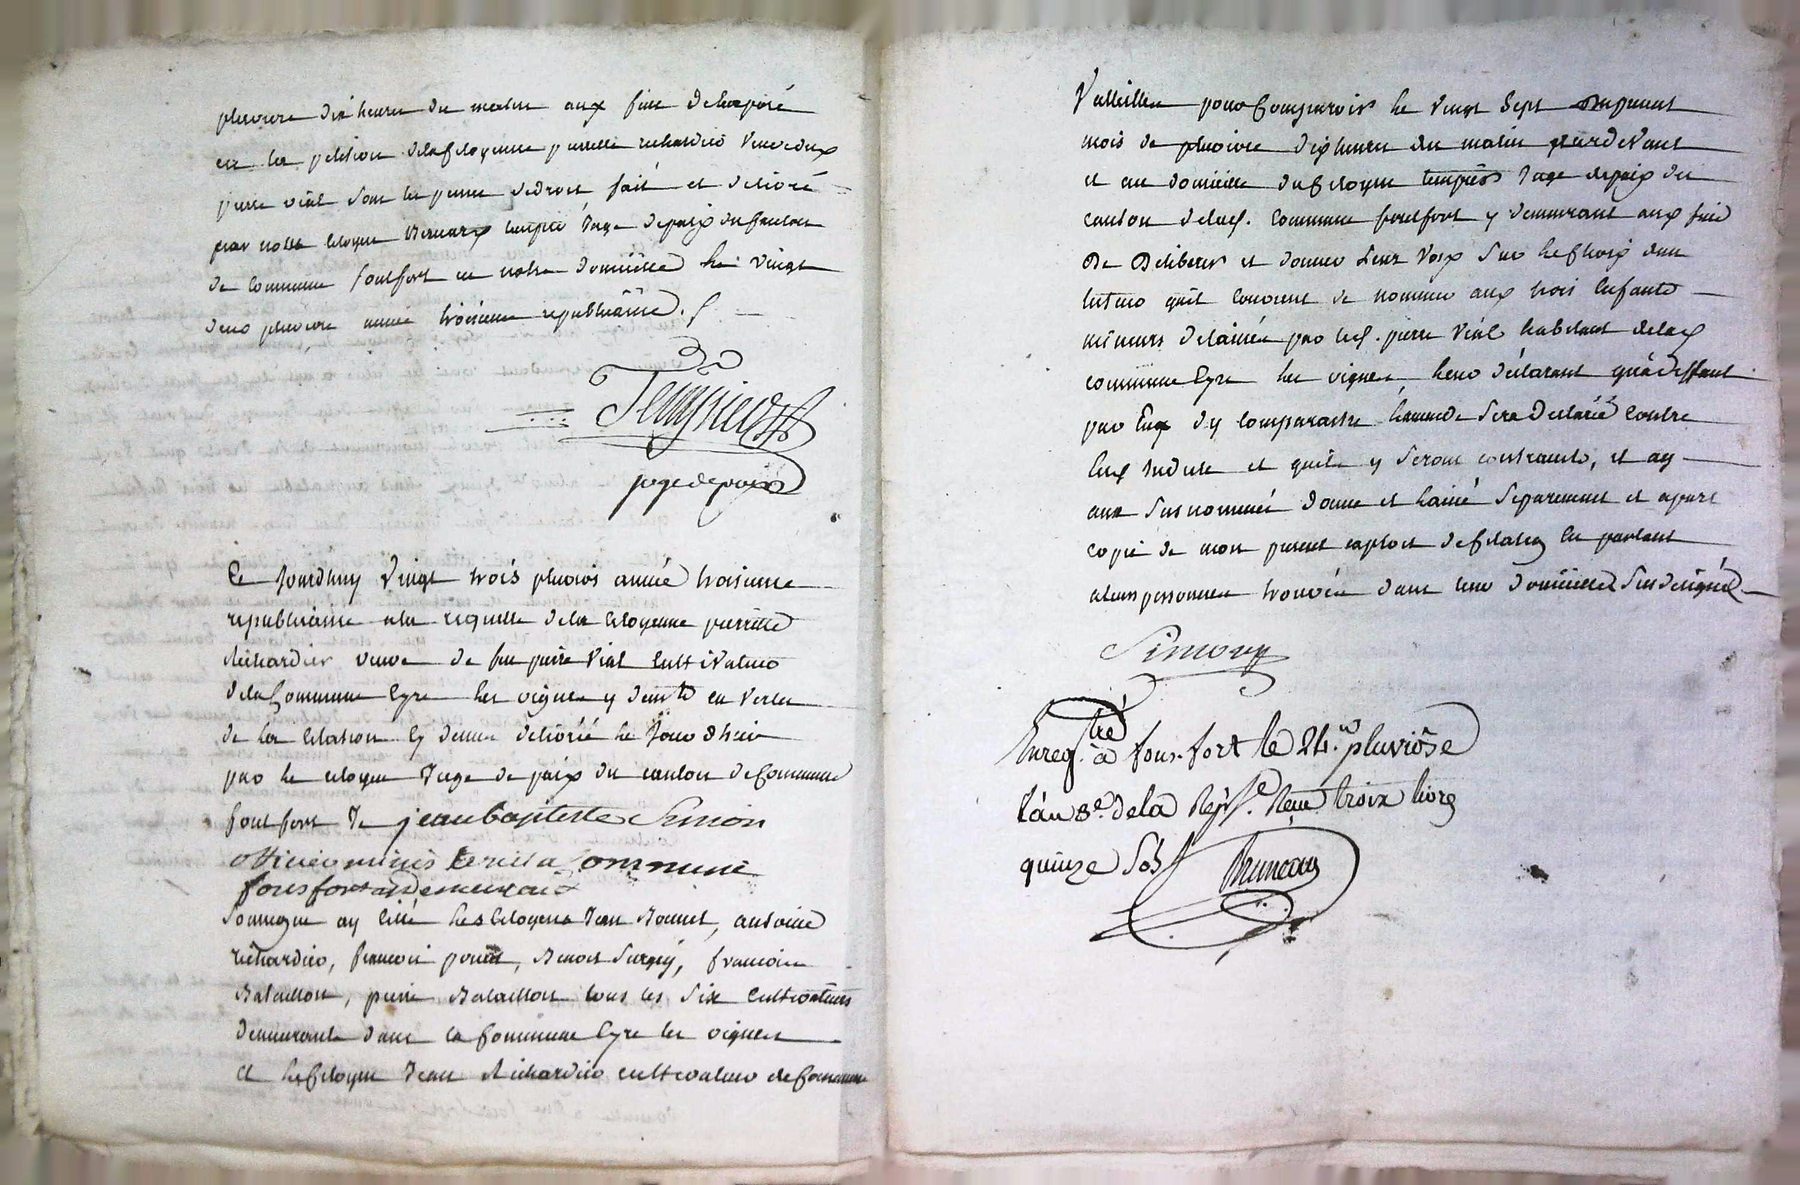 pluviose dix heures du matin aux fins de lexposé
en la petition de la Citoyenne pierrette richardier veuve dudx
pierre vial sous les peines de droit fait et delivré
par nous citoyen tempier Juge de paix du Canton
de Commune fontfort en notre domicille le vingt
deux pluviose année troisieme republicaine.
Tempier
juge de paix
Ce Jourdhuy vingt trois pluvios année troisieme
republicaine a la requette de la Citoyenne pierrette
Richardier veuve de feu pierre vial Cultivateur
de la Commune Cyre les vignes y demte en vertu
de la Citation cy dessus delivréé le Jour dhier
par le citoyen Juge de paix du canton de Commune
fontfort Je jean baptiste Simon
officier ministeriel a Commune
fonsfort demeurant
Soussigné ay Cité les Citoyens Jean Bonnet, antoine
richardier, francois, Benoit, francois
Bataillon, pierre Bataillon tous les Six Cultivateurs
demeurants dans la Commune Cyre les vignes
et le Citoyen Jean Richardier cultivateur de Commune
pour Comparoir le vingt Sept du present
mois de pluviose dix heures du matin pardevant
et au domicille du Citoyen tempier Juge de paix du
canton de lad. Commune fontfort y demeurant aux fins
De Deliberer et donner Leur Voix Sur le Choix dun
tuteur quil Convient de nommer aux trois Enfants
mineurs delaissés par led. pierre Vial habitant de lad
commune Cyre les vignes, leur déclarant quà deffaut
par Eux dy comparaitre lamande Sera Declarée Contre
Eux Induite et quils y Seront contraints, et ay
aux Susnommés donné et laissé Separement et apart
copie de mon present exploit de Citation En parlant
a leurs personnes trouvées dans leur domicilles Sus designés
Simon
Enregtré à fons-fort le 24. pluviôse
l'an 3e. de la Repe. Reçu troix livres
quinze Sols Bruneau